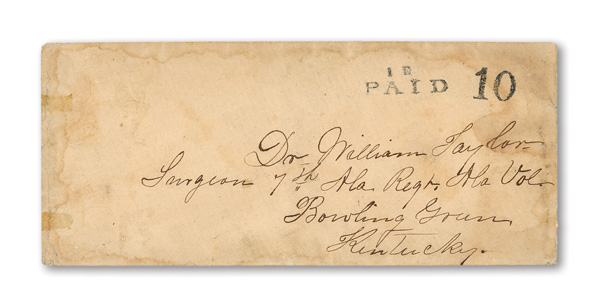 PAID 10
Dr. William Taylor
Surgeon 7th Ala Regt. Ala Vol.
Bowling Green
Kentucky.